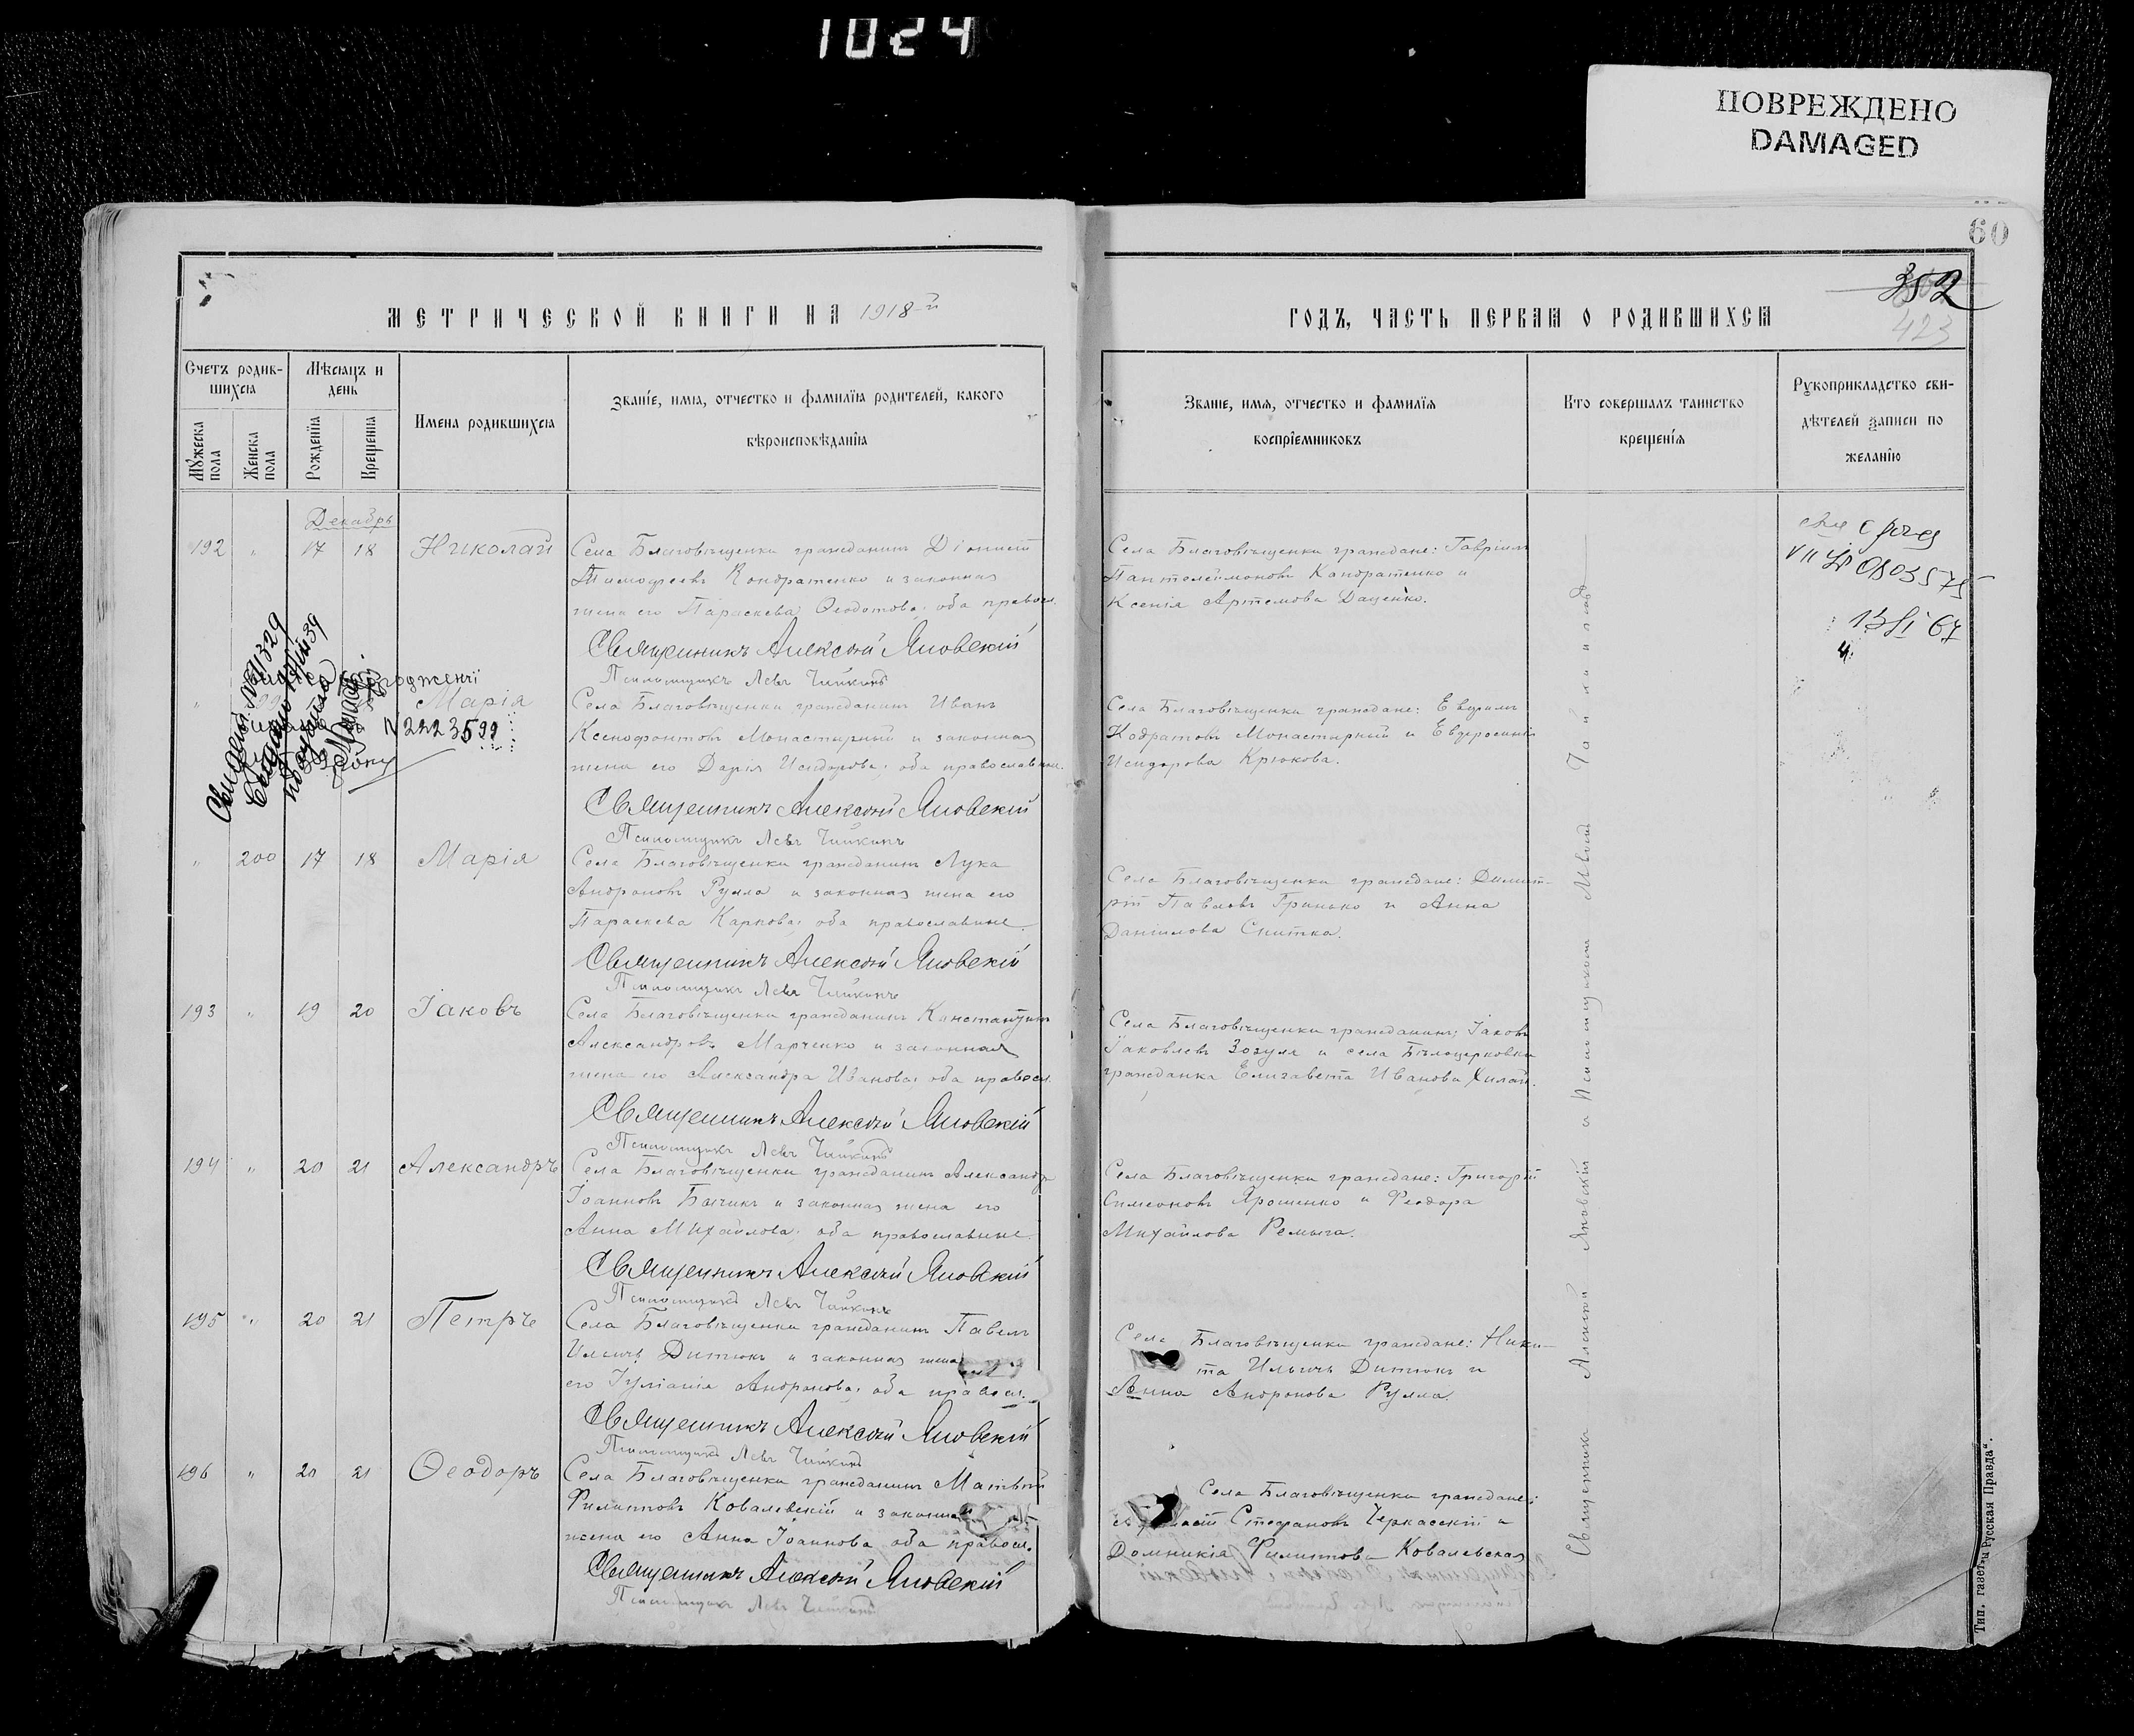 1024
ПОВРЕЖДЕНО
DAMAGED
60
352
423
МЕТРИЧЕСКОЙ КНИГИ НА 1918-й
ГОДЪ, ЧАСТЬ ПЕРВАЯ О РОДИВШИХСЯ
Счетъ родив-
шихся
Мѣсяцъ и
день
Мужеска пола
Женска пола
Рожденія
Крещенія
Имена родившихся
Званіе, имя, отчество и фамилія родителей, какого
вѣроисповѣданія
Званіе, имя, отчество и фамилія
воспріемниковъ
Кто совершалъ таинство
крещенія
Рукоприкладство сви-
дѣтелей записи по
желанію
Декабрь
192 " 17 18 Николай
Села Благовѣщенки гражданинъ Діонисій
Тимофеевъ Кондратенко и законная
жена его Параскева Ѳеодотова; оба правосл.
Священникъ Алексѣй Яновскій
Псаломщикъ Левъ Чайкинъ
Села Благовѣщенки граждане: Гавріилъ
Пантелеимоновъ Кондратенко и
Ксенія Артемова Даценко.
Марія
N 2223599
Села Благовѣщенки гражданинъ Иванъ
Ксенофонтовъ Монастырный и законная
жена его Дарія Исидорова; оба православные.
Священникъ Алексѣй Яновскій
Псаломщикъ Левъ Чайкинъ
Села Благовѣщенки граждане: Евфимъ
Кодратовъ Монастырный и Евфросинія
Исидорова Крюкова.
" 200 17 18 Марія
Села Благовѣщенки гражданинъ Лука
Андроновъ Рулла и законная жена его
Параскева Карпова; оба православные.
Священникъ Алексѣй Яновскій
Псаломщикъ Левъ Чайкинъ
Села Благовѣщенки граждане: Димит-
рій Павловъ Гринько и Анна
Даніилова Скитка.
193 " 19 20 Іаковъ
Села Благовѣщенки гражданинъ Константинъ
Александровъ Марченко и законная
жена его Александра Иванова; оба правосл.
Священникъ Алексѣй Яновскій
Псаломщикъ Левъ Чайкинъ
Села Благовѣщенки гражданинъ; Іаковъ
Іаковлевъ Зозуля и села Бѣлоцерковки
гражданка Елизавета Иванова
194 " 20 21 Александръ
Села Благовѣщенки гражданинъ Александръ
Іоанновъ Бычикъ и законная жена его
Анна Михайлова; оба православные.
Священникъ Алексѣй Яновскій
Псаломщикъ Левъ Чайкинъ
Села Благовѣщенки граждане: Григорій
Симеоновъ Ярошенко и Феодора
Михайлова
195 " 20 21 Петръ
Села Благовѣщенки гражданинъ Павелъ
Ильичъ Дитюкъ и законная жена
его Іуліанія Андронова; оба правосл.
Священникъ Алексѣй Яновскій
Псаломщикъ Левъ Чайкинъ
Села Благовѣщенки граждане: Ники-
та Ильичъ Дитюкъ и
Анна Андронова Рулла.
196 " 20 21 Ѳеодоръ
Села Благовѣщенки гражданинъ Матвѣй
Филипповъ Ковалевскій и законная
жена его Анна Іоаннова, оба правосл.
Священникъ Алексѣй Яновскій
Псаломщикъ Левъ Чайкинъ
Села Благовѣщенки граждане:
Стефановъ Черкасскій и
Домникія Филиппова Ковалевская
Священникъ Алексѣй Яновскій и Псаломщикъ Левъ Чайкинъ
Тип. газеты „Русская Правда“.